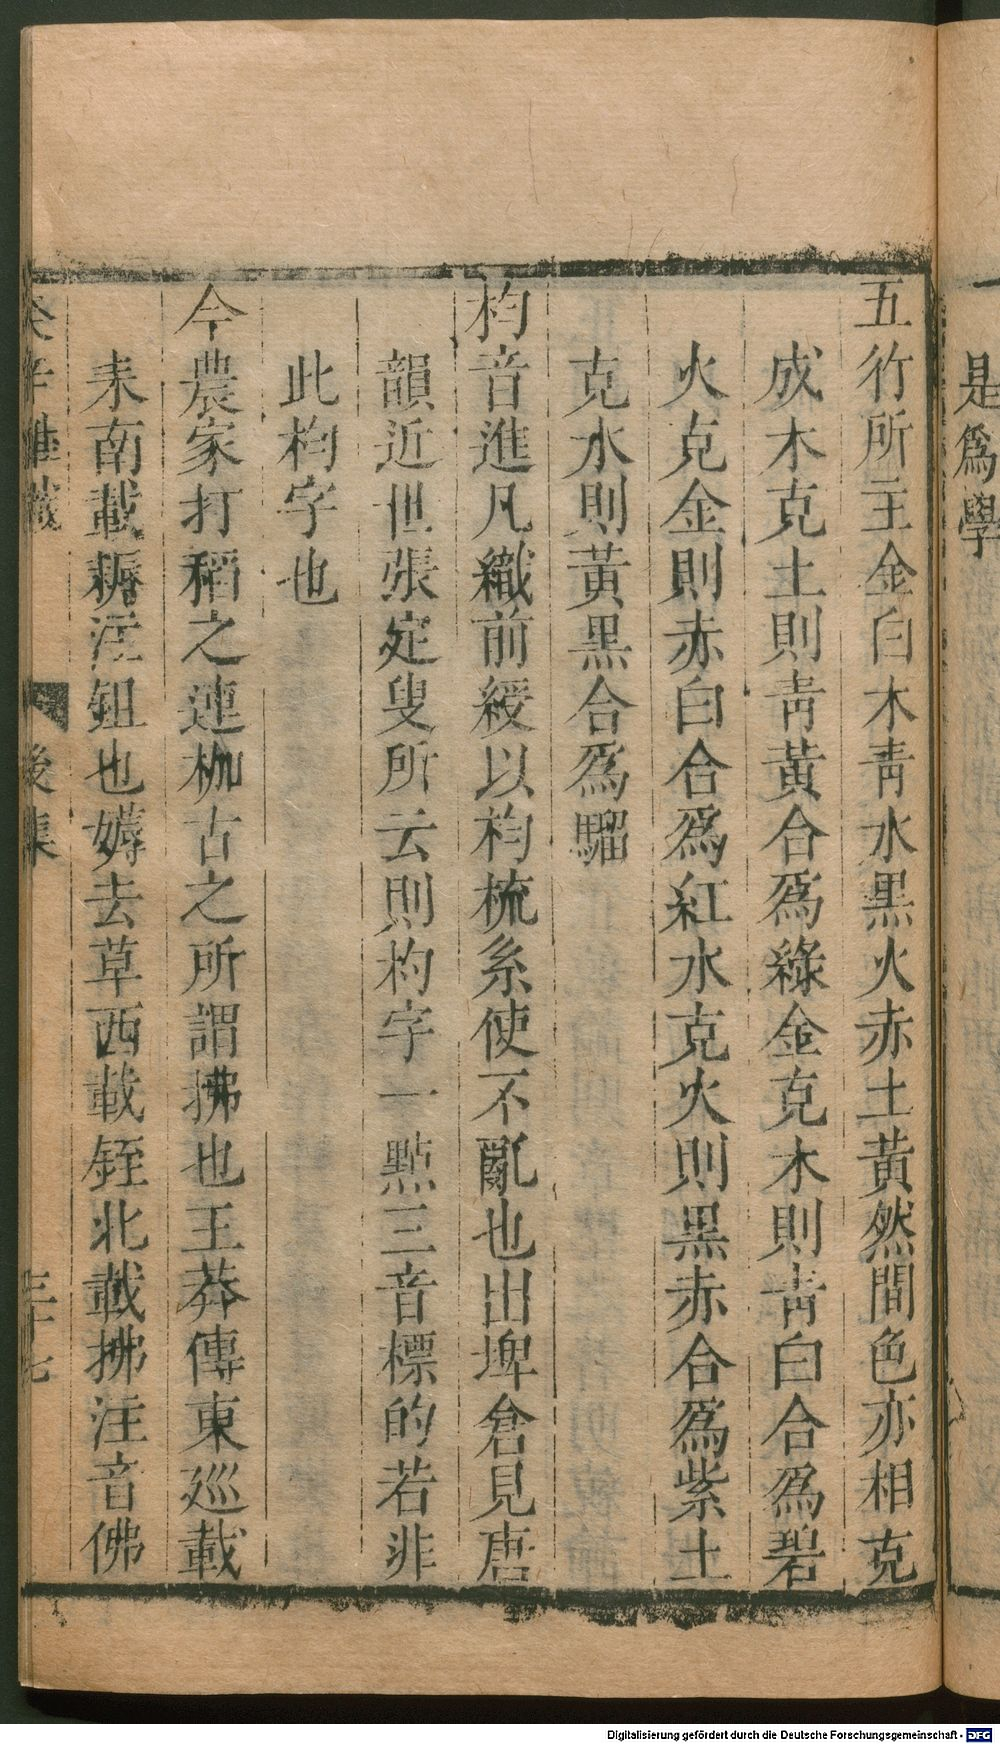 是爲學
五行所主金白木靑水黒火赤土黃然間色亦相克
成木克土則靑黃合爲綠金克木則靑白合爲碧
火克金則赤白合爲紅水克火則黒赤合爲紫土
克水則黃黒合爲騮
杓音進凡織前綬以杓梳糸使不亂也出埤倉見唐
韻近世張定叟所云則杓字一點三音標的若非
此杓字也
今農家打稻之連枷古之所謂拂也王莽傳東巡載
耒南載耨注鉏也薅去草西載銍北載拂注音佛
癸辛雜識
後集
三十七
Digitalisierung gefördert durch die Deutsche Forschungsgemeinschaft - DFG